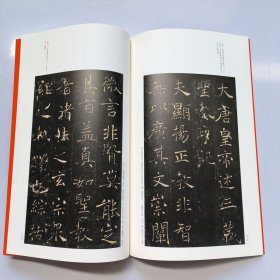 大唐皇帝述三藏
聖教序記
夫顯揚正教非智
無以廣其文崇闡
微言非賢莫能定
其旨蓋真如聖教
者諸法之玄宗眾
經之軌躅也綜括